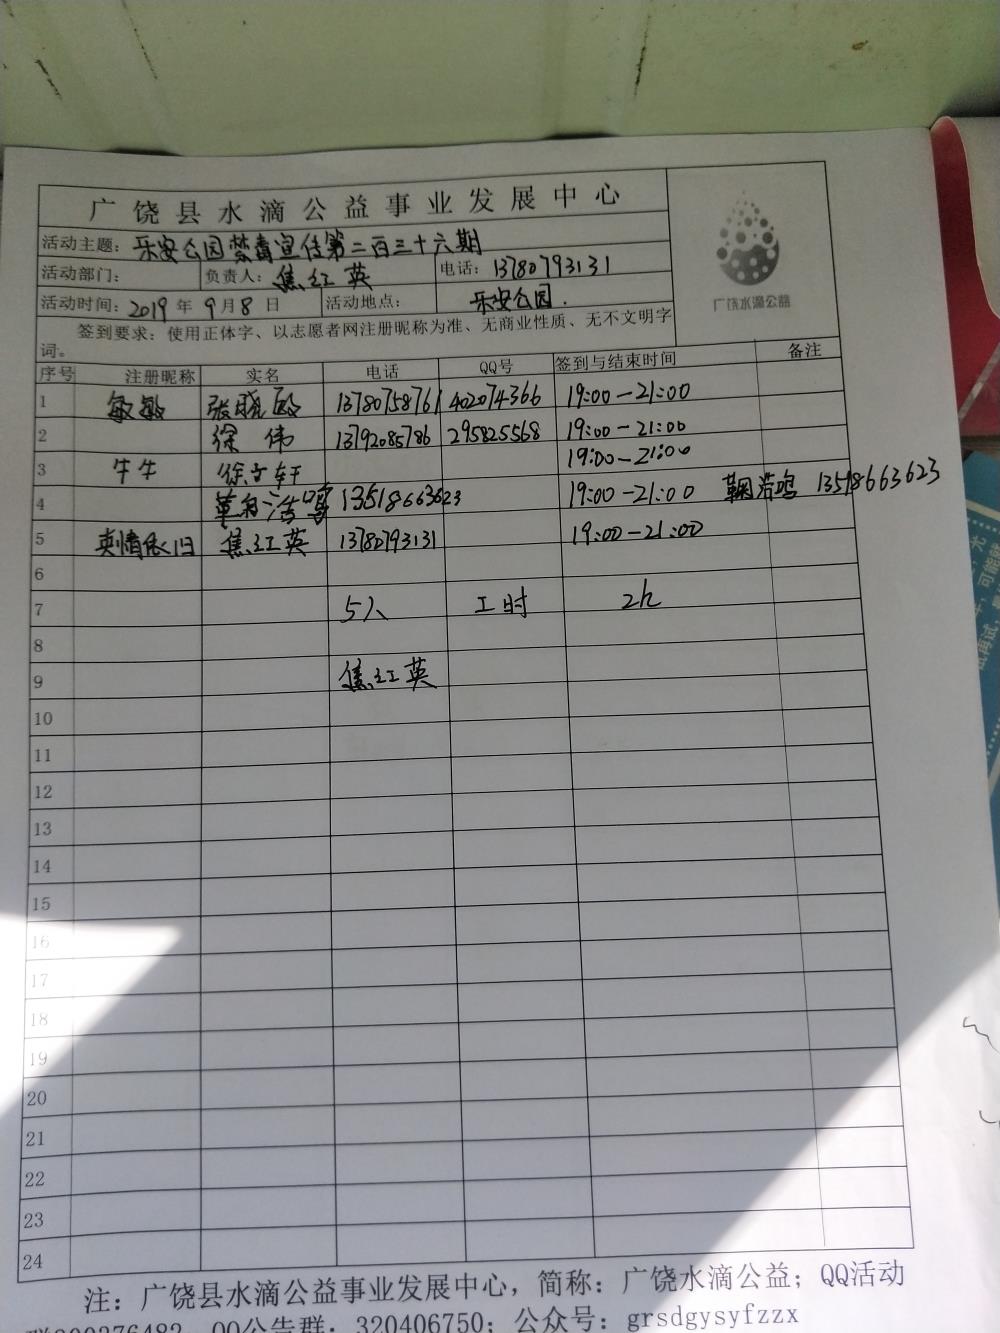 广饶县水滴公益事业发展中心
活动主题：乐安公园禁毒宣传第二百三十六期
活动部门： 负责人：焦红英 电话：13780793131
活动时间：2019年9月8日 活动地点：乐安公园.
广饶水滴公益
签到要求：使用正体字、以志愿者网注册昵称为准、无商业性质、无不文明字
词。
序号 注册昵称 实名 电话 QQ号 签到与结束时间 备注
1 敏敏 张晓 13780758761 402074366 19:00-21:00
2 徐伟 13792085786 295825568 19:00-21:00
3 牛牛 徐文轩 19:00-21:00
4 鞠浩鸣 13518663623 19:00-21:00 鞠浩鸣 13518663623
5 真情依旧 焦红英 13780793131 19:00-21:00
6
7 5人 工时 2h
8
9 焦红英
10
11
12
13
14
15
16
17
18
19
20
21
22
23
24
注：广饶县水滴公益事业发展中心，简称：广饶水滴公益；QQ活动
QQ公告群：320406750；公众号：grsdgysyfzzx